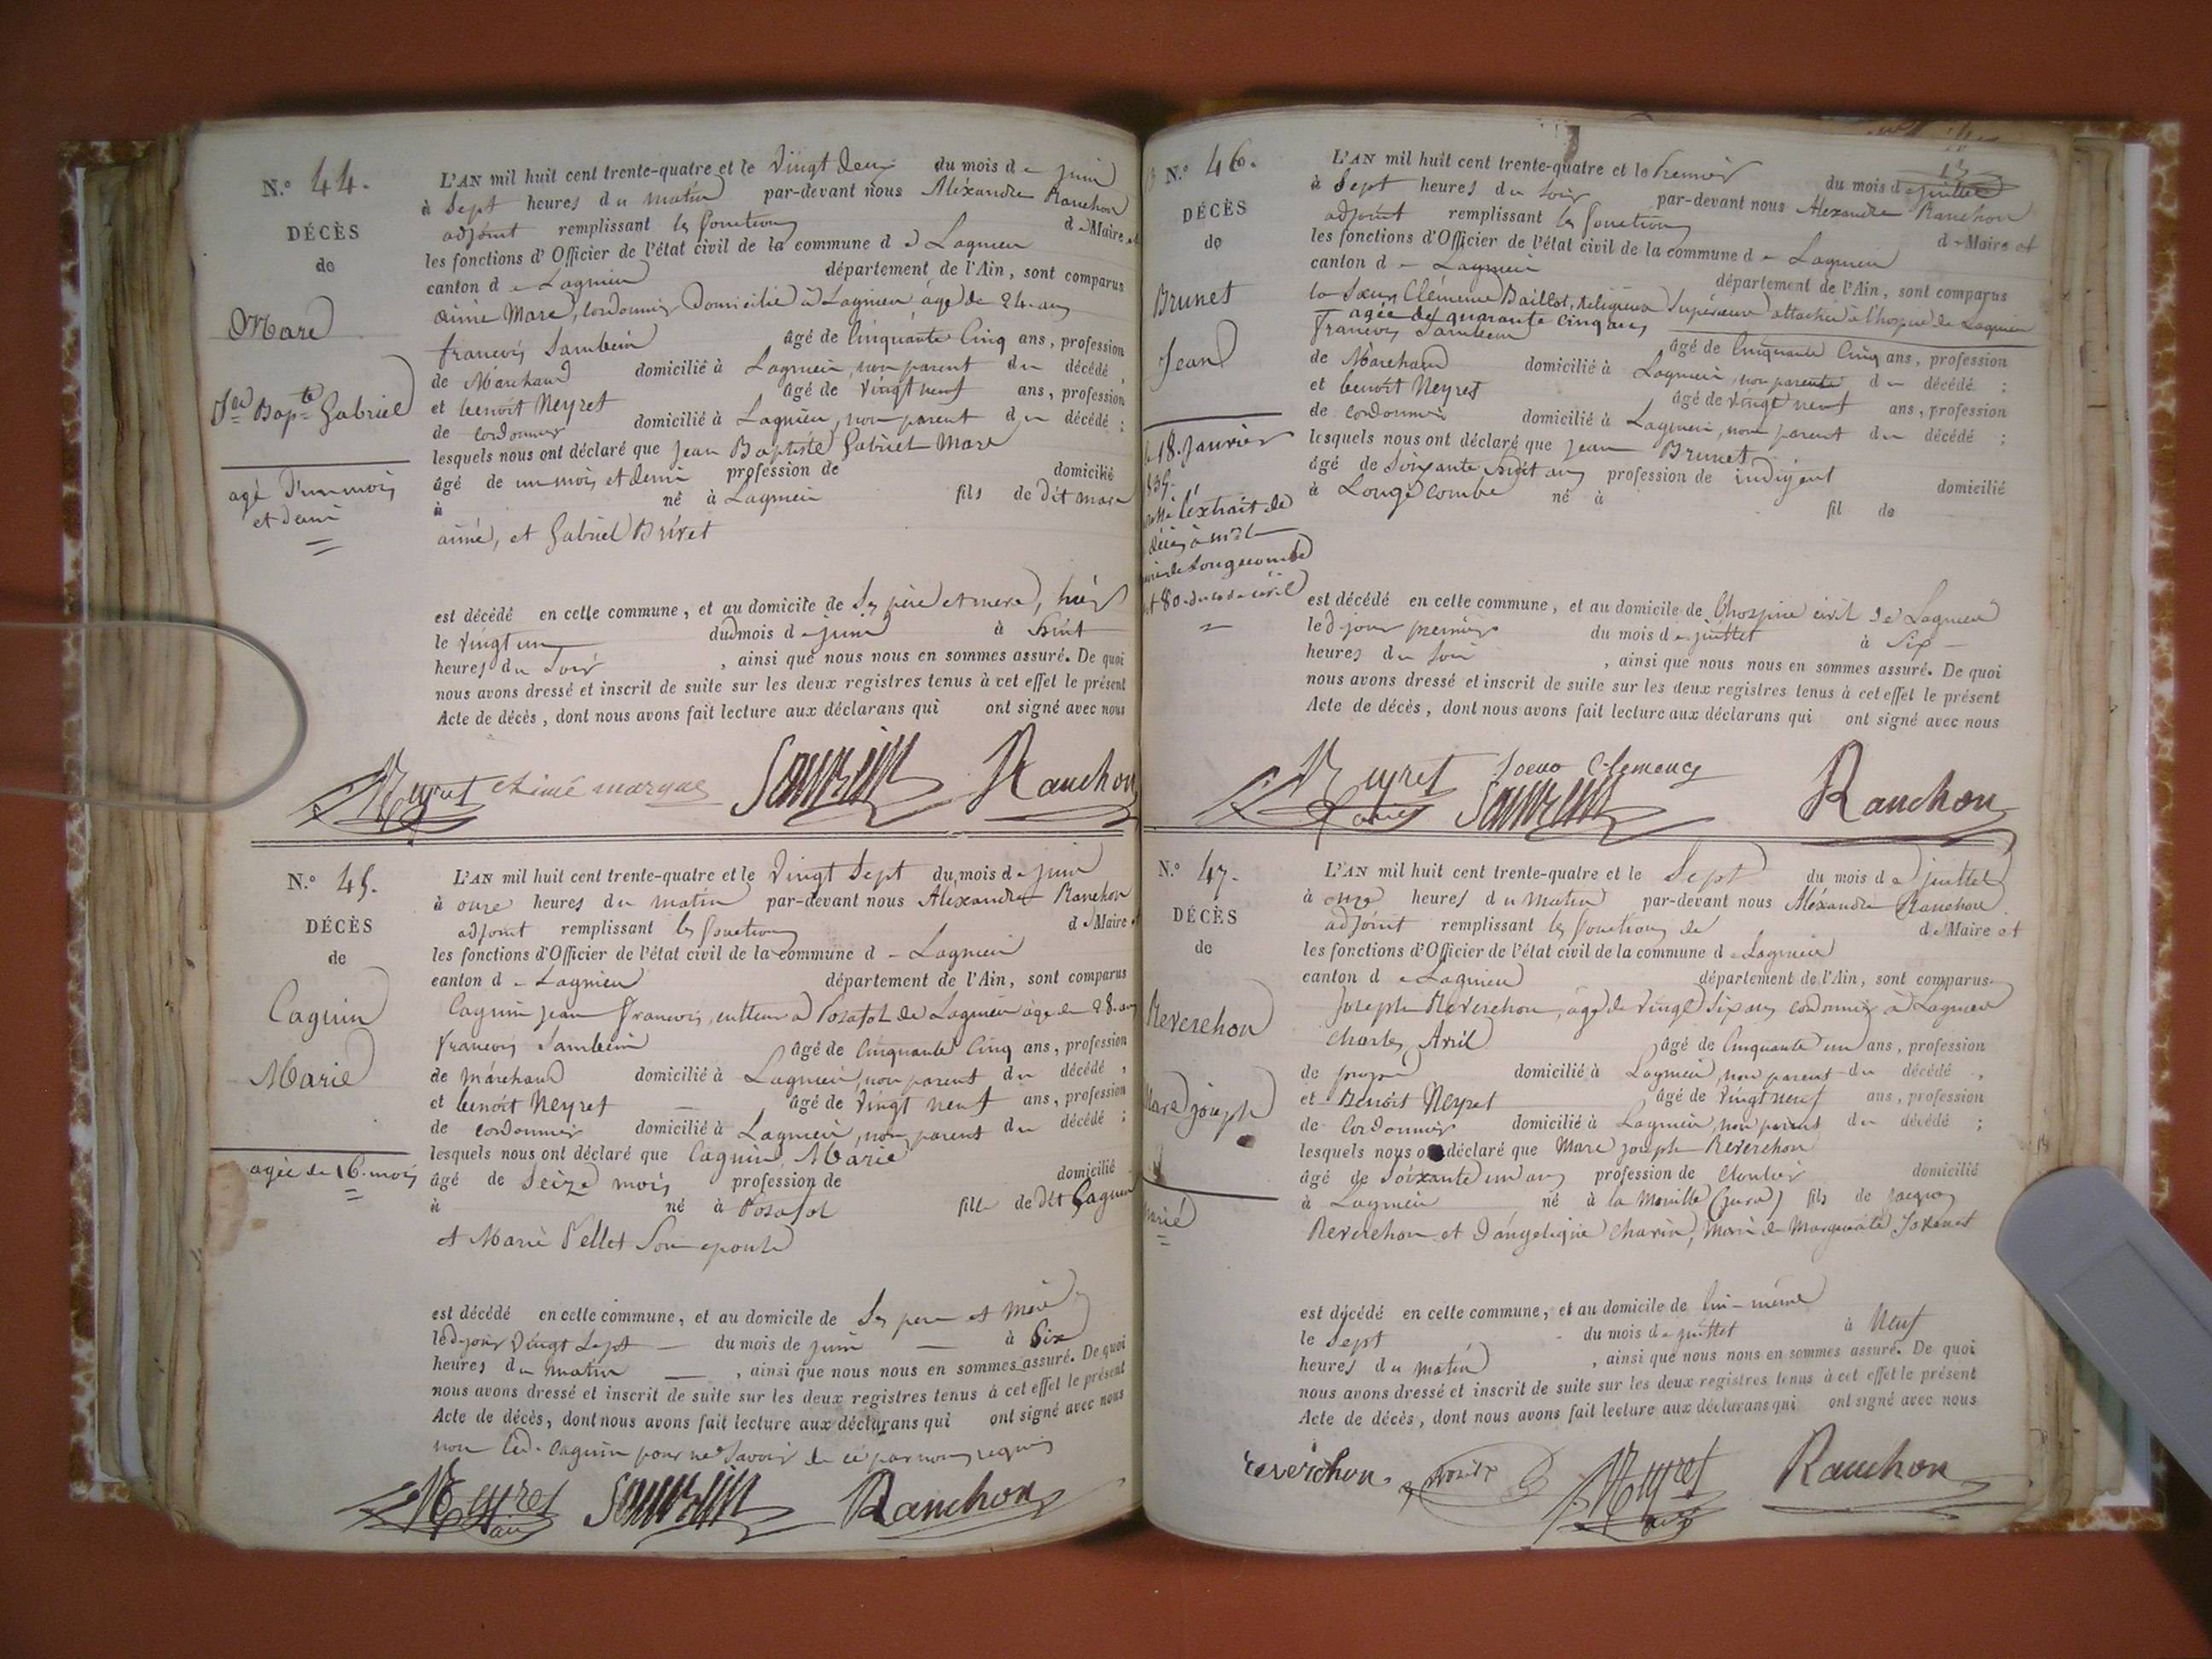 N.° 44.
DÉCÈS
de
Mare
Jean Bapte Gabriel
agé d'un mois
et demi
L'AN mil huit cent trente-quatre et le vingt deux du mois de juin
à Sept heures du matin par-devant nous Aléxandre Ranchon
adjoint remplissant les fonctions de Maire et
les fonctions d'Officier de l'état civil de la commune de Lagnieu
canton de Lagnieu département de l'Ain, sont comparus
aimé Mare, cordonnier domicilié à Lagnieu agé de 24 ans
francois Sambein âgé de Cinquante Cinq ans, profession
de Marchand domicilié à Lagnieu, non parent du décédé,
et benoit Neyret âgé de vingt neuf ans, profession
de cordonnier domicilié à Lagnieu, non parent du décédé;
lesquels nous ont déclaré que Jean Baptiste Gabriel Mare
âgé de un mois et demi profession de domicilié
à né à Lagnieu fils de Dit mare
aimé, et Gabriel Brivet
est décédé en celle commune, et au domicile de Ses père et mere, hier
le vingt un dud mois de juin à huit
heures du Soir, ainsi que nous nous en sommes assuré. De quoi
nous avons dressé et inscrit de suite sur les deux registres tenus à cet effet le présent
Acte de décès, dont nous avons fait lecture aux déclarans qui ont signé avec nous
Neyret Ranchon
N.° 45.
DÉCÈS
de
Caguin
Marie
agée de 16 mois
L'AN mil huit cent trente-quatre et le vingt Sept du mois de juin
à onze heures du matin par-devant nous Aléxandre Ranchon
adjoint remplissant les fonctions de Maire et
les fonctions d'Officier de l'état civil de la commune de Lagnieu
canton de Lagnieu département de l'Ain, sont comparus
Caguin jean francois, culteur à Posafol de Lagnieu agé de 28 ans
francois Sambein âgé de Cinquante Cinq ans, profession
de marchand domicilié à Lagnieu, non parent du décédé,
et benoit Neyret âgé de vingt neuf ans, profession
de cordonnier domicilié à Lagnieu, non parent du décédé;
lesquels nous ont déclaré que Caguin Marie
âgé de Seize mois profession de domicilié
à né à Posafol fille de Dit Caguin
et Marie Pellet Son epouse
est décédé en celle commune, et au domicile de Ses pere et Mère
led jour vingt Sept du mois de juin à Six
heures du matin, ainsi que nous nous en sommes assuré. De quoi
nous avons dressé et inscrit de suite sur les deux registres tenus à cet effet le présent
Acte de décès, dont nous avons fait lecture aux déclarans qui ont signé avec nous
non led. Caguin pour ne Savoir de ce par nous requis
Neyret Ranchon
N.° 46.
DÉCÈS
de
Brunet
Jean
18 Janvier
l'extrait de
Longecombe
L'AN mil huit cent trente-quatre et le premier du mois de juillet
à Sept heures du Soir par-devant nous Alexandre Ranchon
adjoint remplissant les fonctions de Maire et
les fonctions d'Officier de l'état civil de la commune de Lagnieu
canton de Lagnieu département de l'Ain, sont comparus
la Sœur Clémence Baillot, Religieuse Supérieure attachée à l'hospice de Lagnieu
agée de quarante cinq ans
francois Sambein âgé de Cinquante Cinq ans, profession
de Marchand domicilié à Lagnieu, non parente du décédé;
et benoit Neyret âgé de vingt neuf ans, profession
de cordonnier domicilié à Lagnieu, non parent du décédé;
lesquels nous ont déclaré que Jean Brunet
âgé de Soixante huit ans profession de indigent domicilié
à Longecombe né à fil de
est décédé en celle commune, et au domicile de l'hospice civil de Lagnieu
led jour premier du mois de juillet à Six
heures du Soir, ainsi que nous nous en sommes assuré. De quoi
nous avons dressé et inscrit de suite sur les deux registres tenus à cet effet le présent
Acte de décès, dont nous avons fait lecture aux déclarans qui ont signé avec nous
Neyret Soeur Clemence Ranchon
N.° 47.
DÉCÈS
de
Reverchon
Marc joseph
marié
L'AN mil huit cent trente-quatre et le Sept du mois de juillet
à onze heures du matin par-devant nous Aléxandre Ranchon
adjoint remplissant les fonctions de de Maire et
les fonctions d'Officier de l'état civil de la commune de Lagnieu
canton de Lagnieu département de l'Ain, sont comparus
Joseph Reverchon, agé de vingt Six ans cordonnier à Lagnieu
Charles Avril âgé de Cinquante un ans, profession
de domicilié à Lagnieu, non parent du décédé,
et Benoit Neyret âgé de vingt neuf ans, profession
de Cordonnier domicilié à Lagnieu, non parent du décédé;
lesquels nous o déclaré que Marc joseph Reverchon
âgé de Soixante un ans profession de Cloutier domicilié
à Lagnieu né à la Mouille (jura) fils de Jacques
Reverchon et d'angelique Chavin, mari de Marguerite
est décédé en celle commune, et au domicile de lui-même
le Sept du mois de juillet à Neuf
heures du Matin, ainsi que nous nous en sommes assuré. De quoi
nous avons dressé et inscrit de suite sur les deux registres tenus à cet effet le présent
Acte de décès, dont nous avons fait lecture aux déclarans qui ont signé avec nous
reverchon. Neyret Ranchon